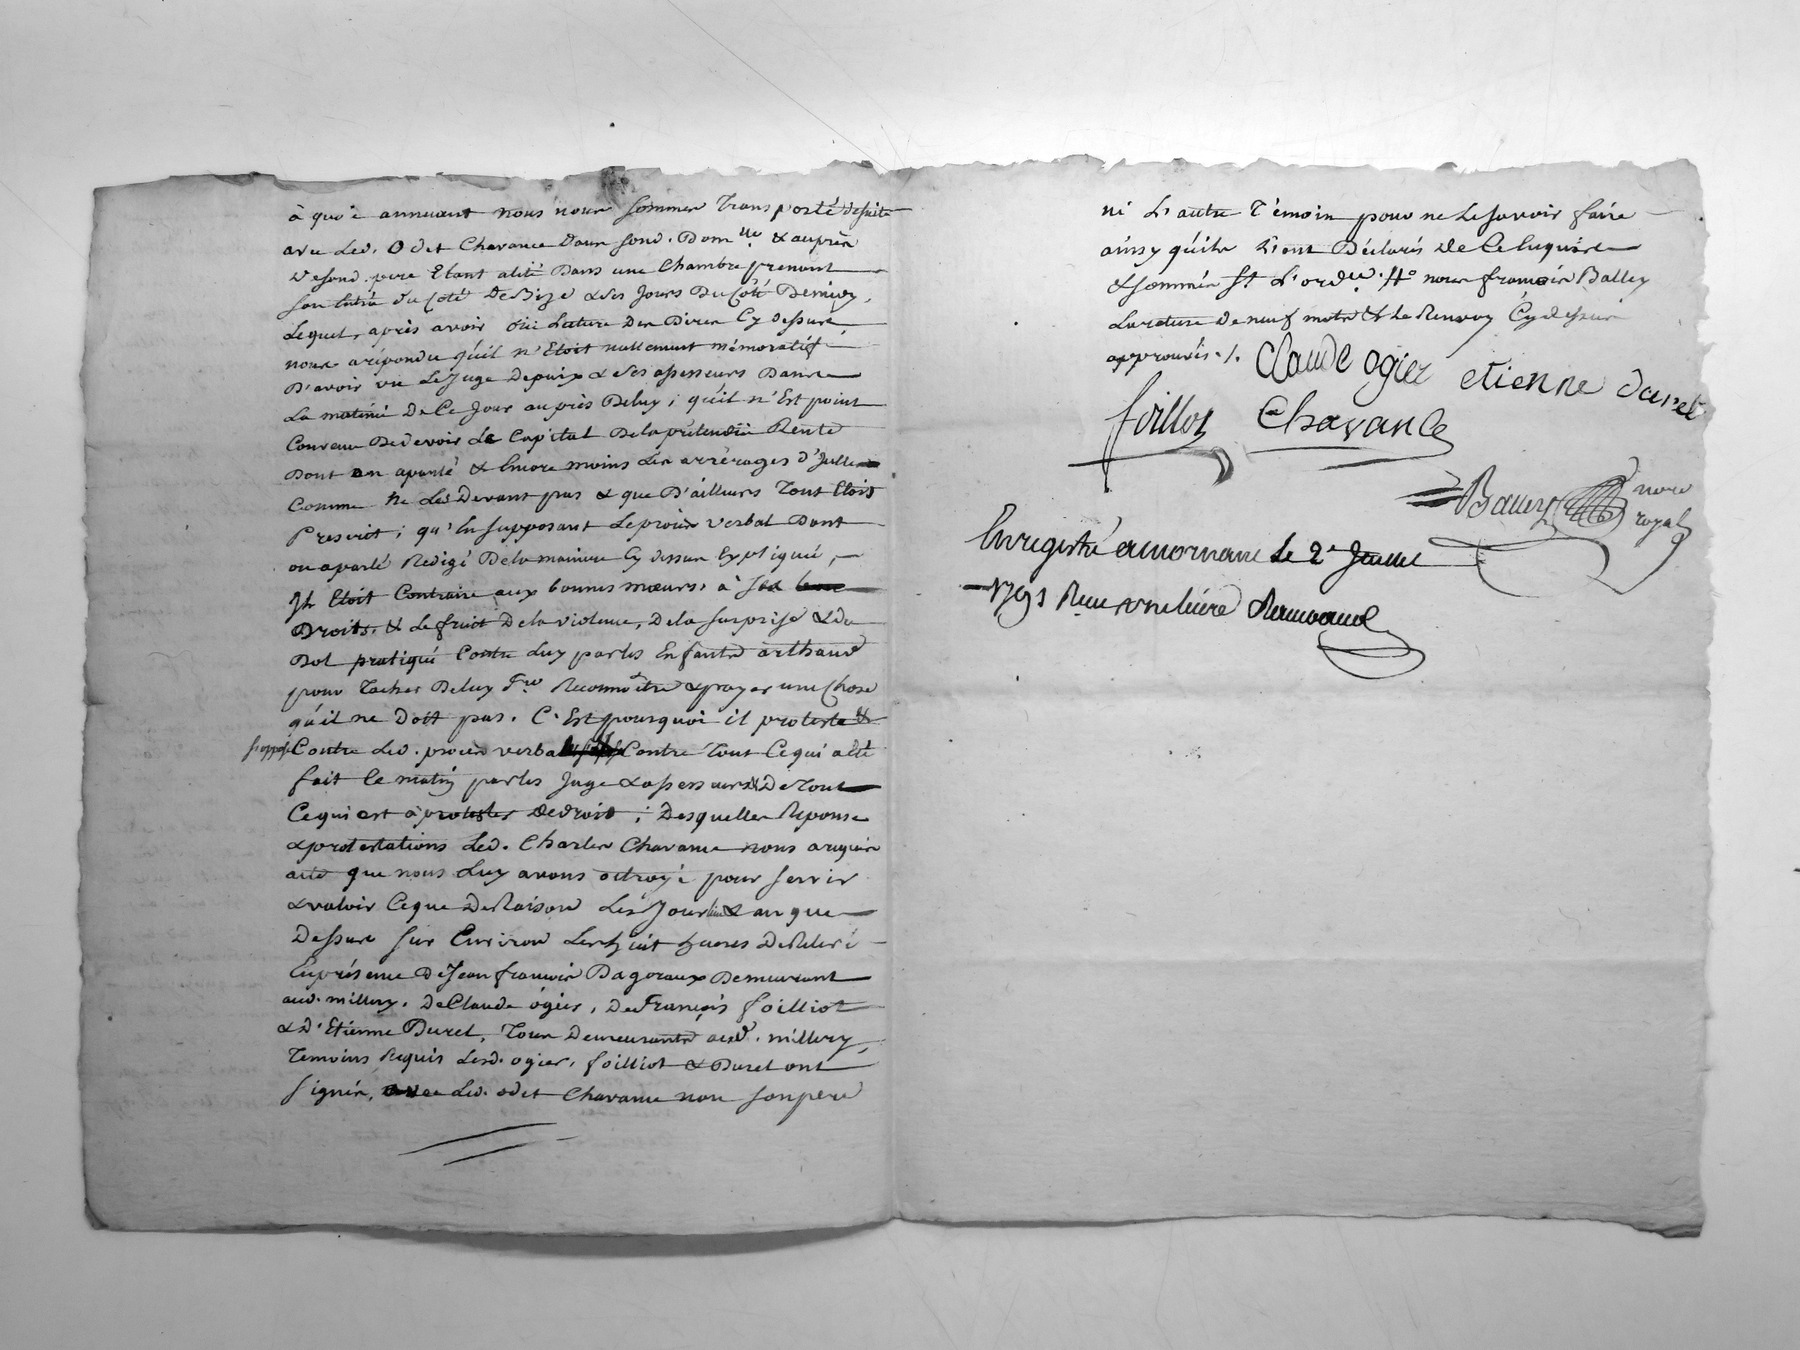 à quoi annuant nous nous sommes transporté desuite
avec led. Odet Chavance dans sond. Dom.lle & auprès
desond. pere Etant alité Dans une Chambre prenant
son Entrée du Coté de Bize & ses Jours Du Coté Demidy,
Lequel, après avoir oüi Lecture Des Dires Cy dessus,
nous arépondu qu'il n'Etoit nullement mémoratif
D'avoir vu Le Juge Depaix & ses assesseurs Dans
La matiné De Ce Jour auprès Deluy ; qu'il n'Est point
Convenu Dedevoir Le Capital Delaprétenduë Rente
Dont on aparlé & Encore moins Les arrérages d'Jcelle
Comme ne Les Devant pas & que D'ailleurs Tout Etoit
Prescrit ; qu'En supposant Leprocès verbal Dont
on aparlé Redigé Dela maniere Cy dessus Expliqué,
Jl Etoit Contraire aux bonnes mœurs, à ses
Droits, & Lefruit Dela violence, Dela surprise & du
Dol pratiqué Contre Luy parles Enfants arthaud
pour Tacher Deluy f.re Reconnoître & payer une Chose
qu'il ne Doit pas. C'Est pourquoi il proteste &
s'oppose Contre Led. procès verbal Contre Tout Cequi aété
fait Ce matin parles Juge & assesseurs & De Tout
Cequi est à protester dedroit ; Desquelles Réponse
& protestations Led. Charles Chavance nous arequis
acte que nous Luy avons octroyé pour servir
& valoir Ceque DeRaison Les Jour lieu & an que
Dessus sur Environ Les huit heures DeRelevé
Enprésence DeJean françois Dagoraux Demeurant
aud. millery, De Claude ogier, De François foilliot
& D'Etienne Duret, Tous Demeurants aud. millery,
Temoins Requis Lesd. ogier, foilliot & Duret ont
signés, avec Led. odet Chavance non sonpere
ni L'autre Témoin pour ne Lesavoir faire
ainsy qu'ils L'ont Déclarés de Ce Enquis
& sommés St L'ord.ce. Ho nous françois Balley
Larature deneuf mots & Le Renvoy Cy dessus
approuvés ./.
Claude ogier
etienne duret
foilliot
Chavance
Balley
nore
royal
Enregistré amornant Le 2e Juillet
1791 Recu